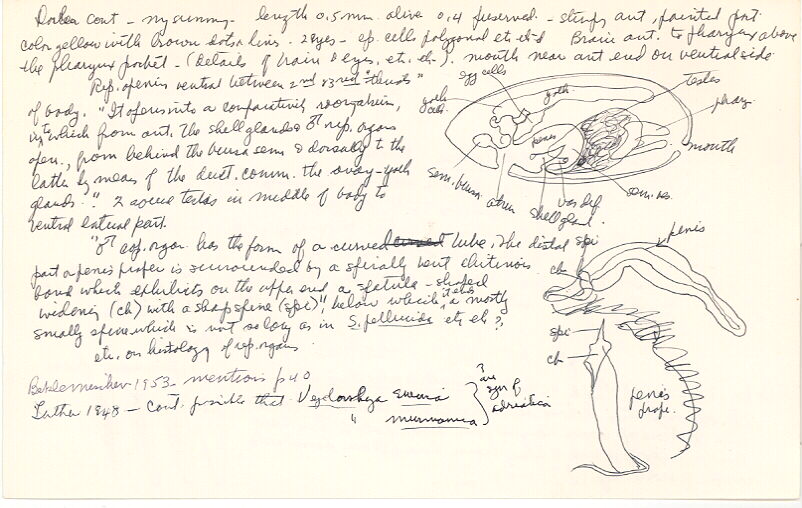 cont - my summary - length 0.5 mm. alive 0.4 preserved -
color yellow with brown dots & lines. 2 eyes - ep. cells polygonal etc etc Brain ant. to pharynx above
the pharynx pocket - (details of brain & eyes, etc. etc.). mouth near ant end on ventral side
Rep. opening ventral between 2nd & 3rd "thirds"
of body. "It opens into a comparatively
into which from ant. the shell glands & ♂ rep. organs
open, from behind the bursa sem. & dorsally to the
latter by means of the duct. comm. the ovary-yolk
glands." 2 testes in middle of body to
ventral lateral part.
egg cells
yolk
testes
phary
mouth
penis
sem. bursa
atrium
shell gland
vas def.
sem. ves.
"♂ cop. organ has the form of a curved tube. The distal
part a penis proper is surrounded by a spirally bent chitinous
band which exhibits on the upper end a spatula-shaped
widening (ch) with a sharp spine (spi)", below which a mostly
small spine which is not so long as in S. pellucida etc etc?
etc. on histology of rep. organs
spi
penis
ch
spi
ch
penis prope.
Beklemischev 1953 - mentions p 40
Luther 1948 - cont. possible that Vejdovskya
" murmanica
? are syn of adriatica